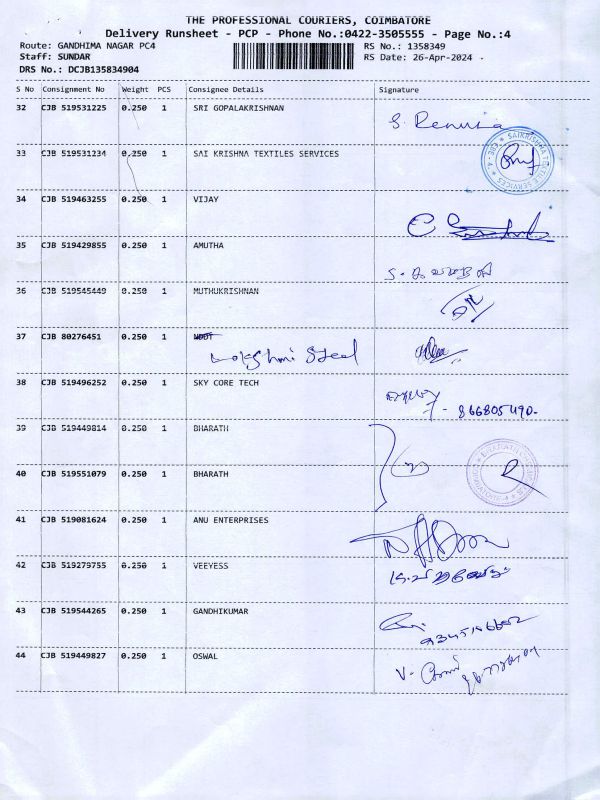 THE PROFESSIONAL COURIERS, COIMBATORE
Delivery Runsheet - PCP - Phone No.:0422-3505555 - Page No.:4
Route: GANDHIMA NAGAR PC4 RS No.: 1358349
Staff: SUNDAR RS Date: 26-Apr-2024
DRS No.: DCJB135834904
S No Consignment No Weight PCS Consignee Details Signature
32 CJB 519531225 0.250 1 SRI GOPALAKRISHNAN S. Renuka
33 CJB 519531234 0.250 1 SAI KRISHNA TEXTILES SERVICES
34 CJB 519463255 0.250 1 VIJAY
35 CJB 519429855 0.250 1 AMUTHA
36 CJB 519545449 0.250 1 MUTHUKRISHNAN
37 CJB 80276451 0.250 1
Lakshmi Steel
38 CJB 519496252 0.250 1 SKY CORE TECH
39 CJB 519449814 0.250 1 BHARATH
40 CJB 519551079 0.250 1 BHARATH
41 CJB 519081624 0.250 1 ANU ENTERPRISES
42 CJB 519279755 0.250 1 VEEYESS
43 CJB 519544265 0.250 1 GANDHIKUMAR
44 CJB 519449827 0.250 1 OSWAL